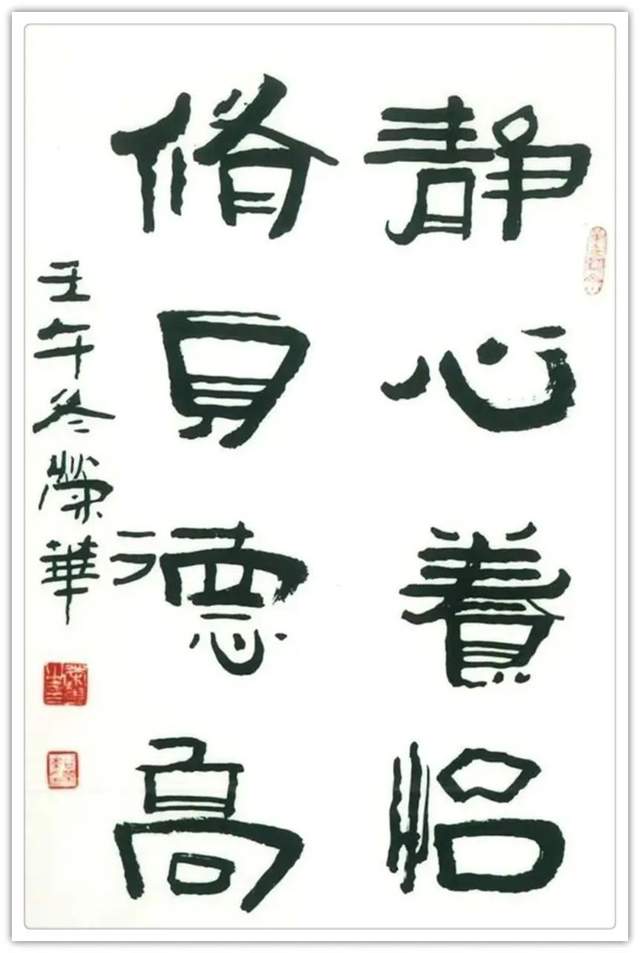 静心養怡
脩身德高
壬午冬榮華